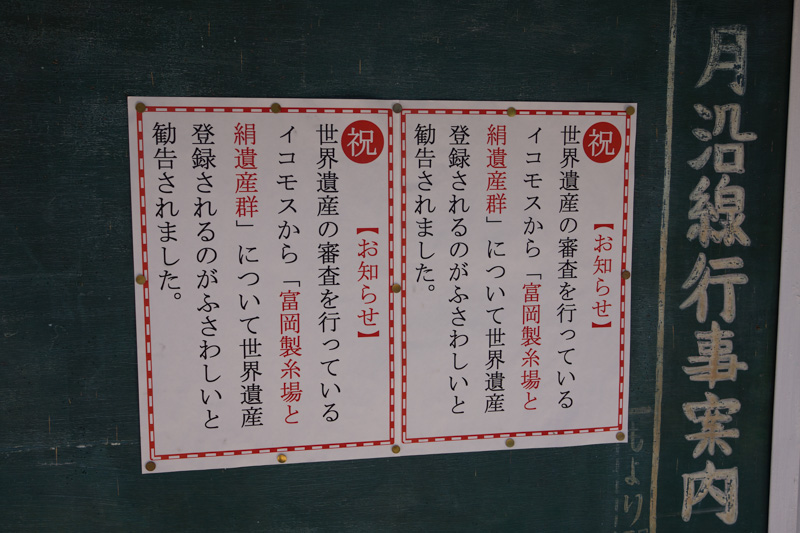 月沿線行事案内
もより
祝
【お知らせ】
世界遺産の審査を行っている
イコモスから「富岡製糸場と
絹遺産群」について世界遺産
登録されるのがふさわしいと
勧告されました。
祝
【お知らせ】
世界遺産の審査を行っている
イコモスから「富岡製糸場と
絹遺産群」について世界遺産
登録されるのがふさわしいと
勧告されました。